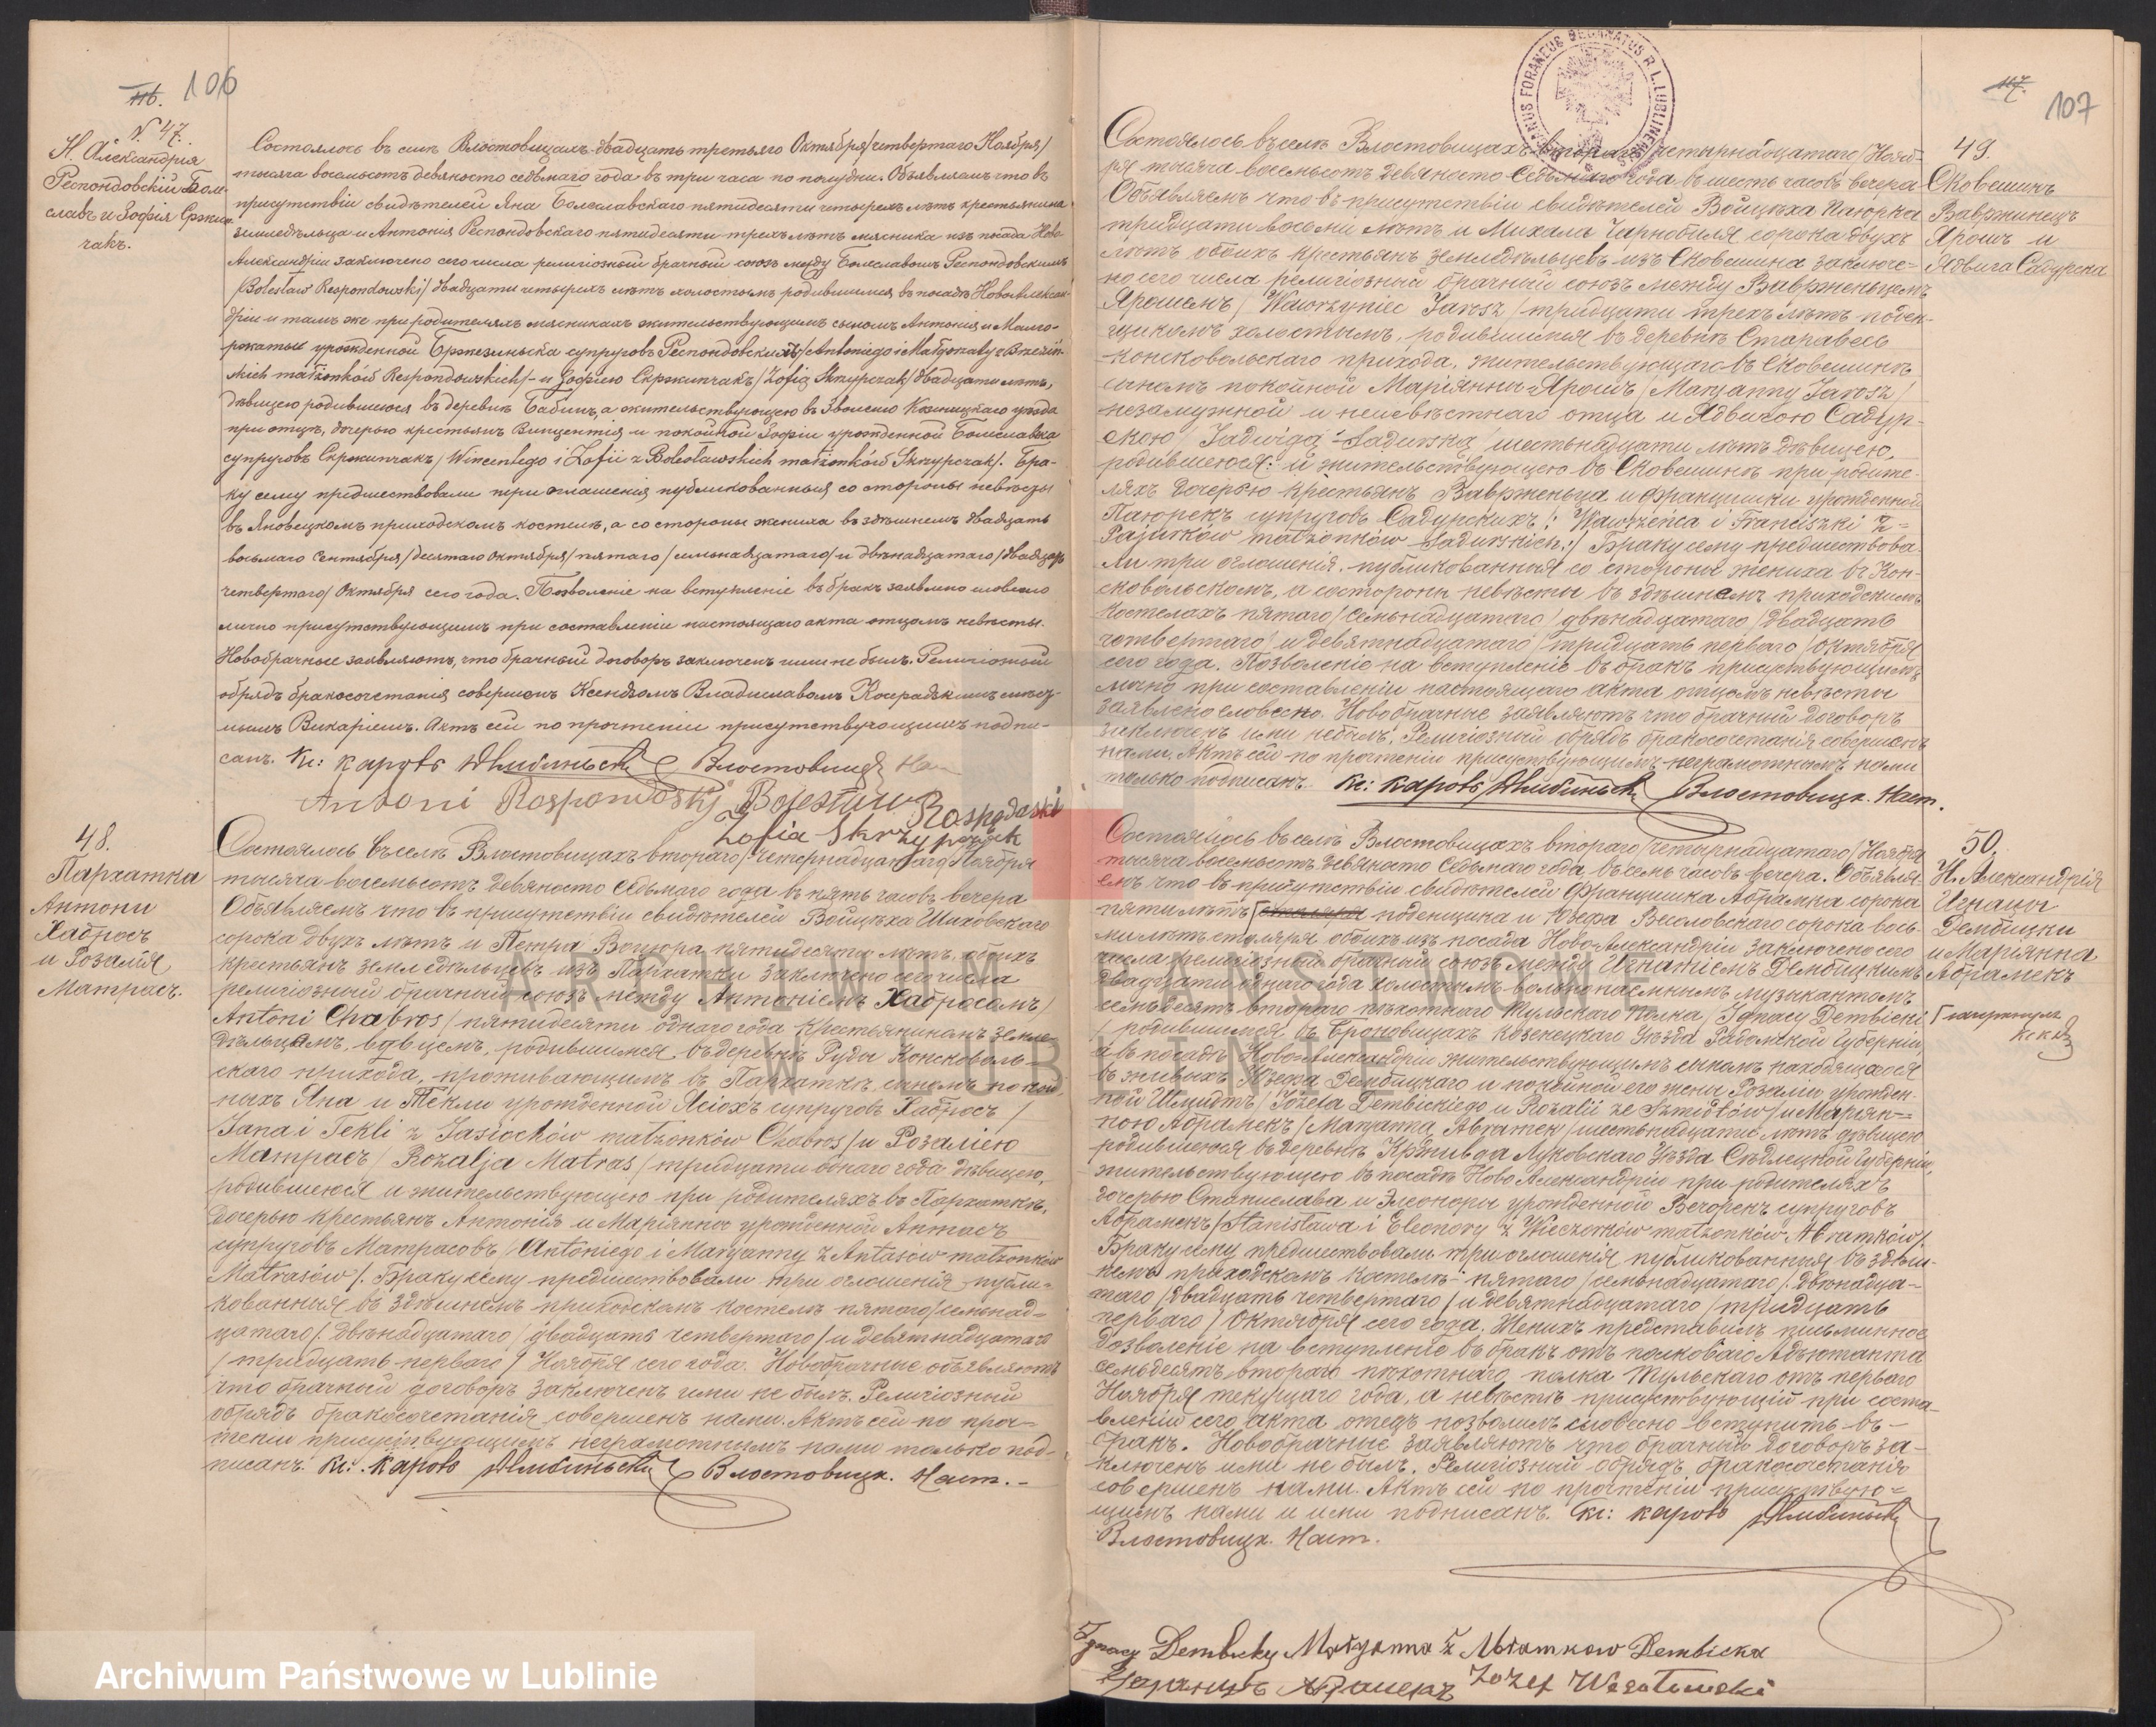 116. 106
N 47.
Н. Александрія
Респондовскій Боле
славъ и Зофія Скржип
чакъ.
Состоялось въ селѣ Влостовицахъ двадцать третьяго Октября/четвертаго Ноября/
тысяча восемьсотъ девяносто седьмаго года въ три часа по полудни. Объявляемъ что въ
присутствіи свидѣтелей Яна Болеславскаго пятидесяти четырехъ лѣтъ крестьянина
земледѣльца и Антонія Респондовскаго пятидесяти трехъ лѣтъ мясника изъ посада Ново
Александріи заключено сего числа религіозный брачный союзъ между Болеславомъ Респондовскимъ
/Bolesław Respondowski/ двадцати четырехъ лѣтъ холостымъ родившимся въ посадѣ Новоалексан
дріи и тамъ же при родителяхъ мясникахъ жительствующимъ сыномъ Антонія и Малго-
ржаты урожденной Бржезиньска супруговъ Респондовскихъ/Antoniego i Małgorzaty z Brzeziń-
skich małżonków Respondowskich/- и Зофіею Скржипчакъ/Zofią Skrzypczak/ двадцати лѣтъ,
дѣвицею родившеюся въ деревнѣ Бабинъ, а жительствующею въ Зволеню Козеницкаго уѣзда
при отцѣ, дочерью крестьянъ Винцентія и покойной Зофіи урожденной Болеславска
супруговъ Скржипчакъ/Wincentego i Zofii z Bolesławskich małżonków Skrzypczak/. Бра-
ку сему предшествовали три оглашенія публикованныя со стороны невѣсты
въ Яновецкомъ приходскомъ костелѣ, а со стороны жениха въ здѣшнемъ двадцать
восьмаго Сентября/десятаго Октября/пятаго/семьнадцатаго/и двѣнадцатаго/двадцать
четвертаго/ Октября сего года. Позволеніе на вступленіе въ бракъ заявлено словесно
лично присутствующимъ при составленіи настоящаго акта отцомъ невѣсты.
Новобрачные заявляютъ, что брачный договоръ заключенъ ими не былъ. Религіозный
обрядъ бракосочетанія совершенъ Ксендзомъ Владиславомъ Косерадскимъ мѣст-
нымъ Викаріемъ. Актъ сей по прочтеніи присутствующимъ подпи-
санъ. Кс: Кароль Дембиньски Влостовицк Нас
Antoni Rospondoskij Bolesław Rospodoski
Zofia Skrzypczak
48.
Пархатка
Антони
Хабросъ
и Розалія
Матрасъ.
Состоялось въ селѣ Влостовицахъ втораго/четырнадцатаго/Ноября
тысяча восемьсотъ девяносто седьмаго года въ пять часовъ вечера
Объявляемъ что въ присутствіи свидѣтелей Войцѣха Шиховскаго
сорока двухъ лѣтъ и Петра Воцюра пятидесяти лѣтъ, обоихъ
крестьянъ земледѣльцевъ изъ Пархатки заключено сего числа
религіозный брачный союзъ между Антоніемъ Хабросомъ/
Antoni Chabros/ пятидесяти одного года крестьяниномъ земле-
дѣльцемъ, вдовцемъ, родившимся въ деревнѣ Руды Консковоль-
скаго прихода, проживающимъ въ Пархаткѣ, сыномъ покой
ныхъ Яна и Текли урожденной Ясіохъ супруговъ Хабросъ /
Jana i Tekli z Jasiochów małżonków Chabros/ и Розаліею
Матрасъ/ Rozalja Matras/ тридцати одного года дѣвицею,
родившеюся и жительствующею при родителяхъ въ Пархаткѣ,
дочерью крестьянъ Антонія и Маріянны урожденной Антасъ
супруговъ Матрасовъ/Antoniego i Maryanny z Antasów małżonków
Matrasów/. Браку сему предшествовали три оглашенія публи-
кованныя въ здѣшнемъ приходскомъ костелѣ пятаго/семьнад-
цатаго/. Двѣнадцатаго/двадцать четвертаго/ и девятнадцатаго
/тридцать перваго/ Ноября сего года. Новобрачные объявляютъ
что брачный договоръ заключенъ ими не былъ. Религіозный
обрядъ бракосочетанія совершенъ нами. Актъ сей по проч-
теніи присутствующимъ неграмотнымъ нами только под-
писанъ. Кс: Кароль Дембиньски Влостовицк. Наст.-
117. 107
49.
Сковешинъ
Вавржинецъ
Ярошъ и
Ядвига Садурска
Состоялось въ селѣ Влостовицахъ втораго/четырнадцатаго/Нояб-
ря тысяча восемьсотъ девяносто седьмаго года въ шесть часовъ вечера
Объявляемъ что въ присутствіи свидѣтелей Войцѣха Паюрка
тридцати восьми лѣтъ и Михала Чарнобиля сорока двухъ
лѣтъ обоихъ крестьянъ земледѣльцевъ изъ Сковешина заключе-
но сего числа религіозный брачный союзъ между Вавржиньцемъ
Ярошемъ/ Wawrzyniec Jarosz/ тридцати трехъ лѣтъ поден-
щикомъ холостымъ, родившимся въ деревнѣ Старавесь
Консковольскаго прихода, жительствующаго въ Сковешинѣ
сыномъ покойной Маріянны Ярошъ/Maryanny Jarosz/
незамужной и неизвѣстнаго отца и Ядвигою Садур-
скою/ Jadwiga Sadurska/ шестьнадцати лѣтъ дѣвицею,
родившеюся и жительствующею въ Сковешинѣ при родите-
ляхъ дочерью крестьянъ Вавржиньца и Францишки урожденной
Паюрекъ супруговъ Садурскихъ/: Wawrzeńca i Franciszki z-
Pajurków małżonków Sadurskich:/ Браку сему предшествова-
ли три оглашенія, публикованныя со стороны жениха въ Кон-
сковольскомъ, а со стороны невѣсты въ здѣшнемъ приходскомъ
костелахъ пятаго/семьнадцатаго/двѣнадцатаго/двадцать
четвертаго/ и девятнадцатаго/тридцать перваго/Октября
сего года. Позволеніе на вступленіе въ бракъ присутствующимъ
лично при составленіи настоящаго акта отцомъ невѣсты
заявлено словесно. Новобрачные заявляютъ что брачный договоръ
заключенъ ими не былъ. Религіозный обрядъ бракосочетанія совершенъ
нами. Актъ сей по прочтеніи присутствующимъ неграмотнымъ нами
только подписанъ. Кс: Кароль Дембиньски Влостовицк. Наст.
50.
Н. Александрія
Игнацы
Дембицки
и Маріянна
Абрамекъ
Состоялось въ селѣ Влостовицахъ втораго/четырнадцатаго/Ноября
тысяча восемьсотъ девяносто седьмаго года, въ семь часовъ вечера. Объявля-
емъ что въ присутствіи свидѣтелей Францишка Абрамка сорока
пяти лѣтъ столяра поденщика и Юзефа Веселовскаго сорока вось-
ми лѣтъ столяра обоихъ изъ посада Ново-Александріи заключено сего
числа религіозный брачный союзъ между Игнатіемъ Дембицкимъ
двадцати одного года холостымъ вольнонаемнымъ музыкантомъ
семьдесятъ втораго пѣхотнаго Тульскаго полка/Ignacy Dembicki
/ родившимся въ Гроновицахъ Козенецкаго уѣзда Радомской губерніи,
а въ посадѣ Ново-Александріи жительствующимъ сыномъ находящагося
въ живыхъ Юзефа Дембицкаго и покойной его жены Розаліи урожден-
ной Шмидтъ/Józefa Dembickiego i Rozalii ze Szmidtów/ и Маріян-
ною Абрамекъ/Maryanna Abramek/шестьнадцати лѣтъ дѣвицею
родившеюся въ деревнѣ Кржывда Луковскаго уѣзда Сѣдлецкой губерніи,
жительствующею въ посадѣ Ново Александріи при родителяхъ
дочерью Станислава и Элеоноры урожденной Вечорекъ супруговъ
Абрамекъ/Stanisława i Eleonory z Wieczorków małżonków Abramków/
Браку сему предшествовали три оглашенія публикованныя въ здѣш-
немъ приходскомъ костелѣ пятаго/семьнадцатаго/. двѣнадца-
таго/двадцать четвертаго/ и девятнадцатаго/тридцать
перваго/ Октября сего года. Женихъ представилъ письменное
дозволеніе на вступленіе въ бракъ отъ полковаго Адъютанта
семьдесятъ втораго пѣхотнаго полка Тульскаго отъ перваго
Ноября текущаго года, а невѣстѣ присутствующій при соста-
вленіи сего акта отецъ позволилъ словесно вступить въ-
бракъ. Новобрачные заявляютъ что брачный договоръ за-
ключенъ ими не былъ. Религіозный обрядъ бракосочетанія
совершенъ нами. Актъ сей по прочтеніи присутствую-
щимъ нами и ими подписанъ. Кс: Кароль Дембиньски
Влостовицк. Наст.
Ignacy Dembicky Maryanna z Abramkow Dembicka
Францъ Абрамекъ Jozef Wesołowski
ARCHIWUM PAŃSTWOWE
W LUBLINIE
Archiwum Państwowe w Lublinie